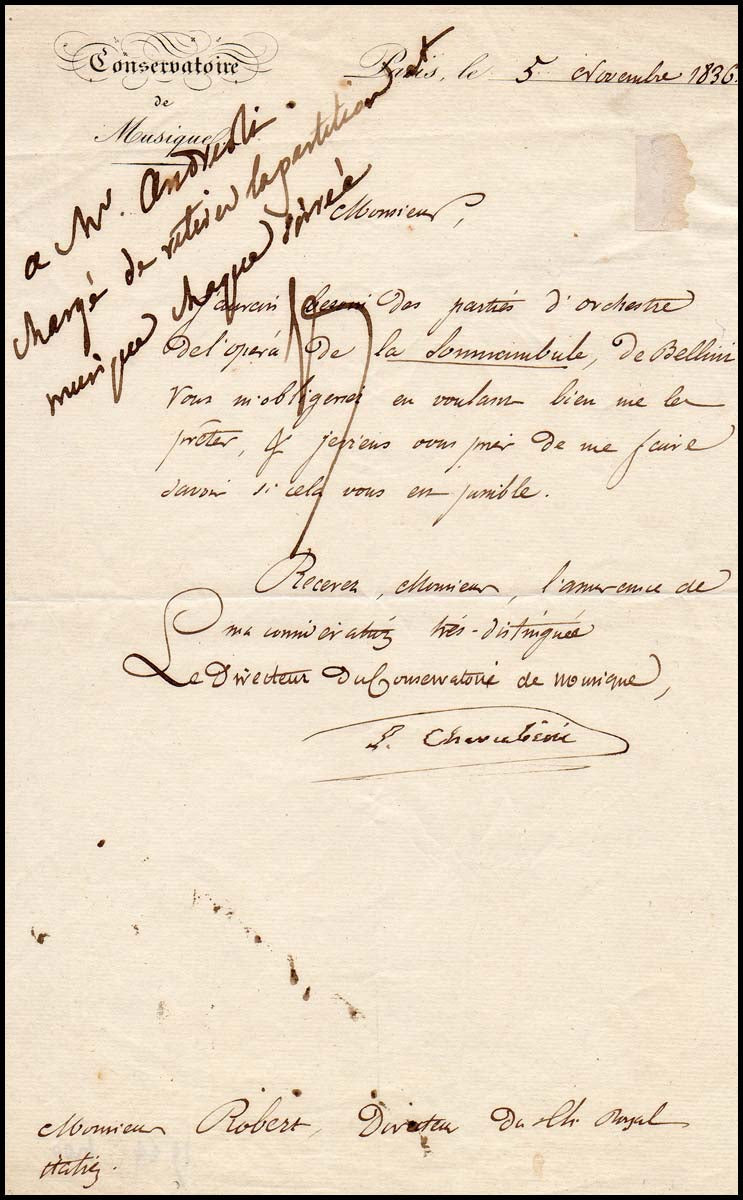 Conservatoire
de
Musique
Paris, le 5 Novembre 1836.
a Mr. Andreoli
chargé de retirer la partition et
musique chaque soirée
Monsieur,
J'aurais besoin des parties d'orchestre
de l'opéra de la Somnambule, de Bellini
Vous m'obligerez en voulant bien me les
prêter, & je viens vous prier de me faire
savoir si cela vous est possible.
Recevez, Monsieur, l'assurance de
ma considération très-distinguée
Le Directeur du Conservatoire de musique,
L. Cherubini
Monsieur Robert, Directeur du Th. Royal
italien.